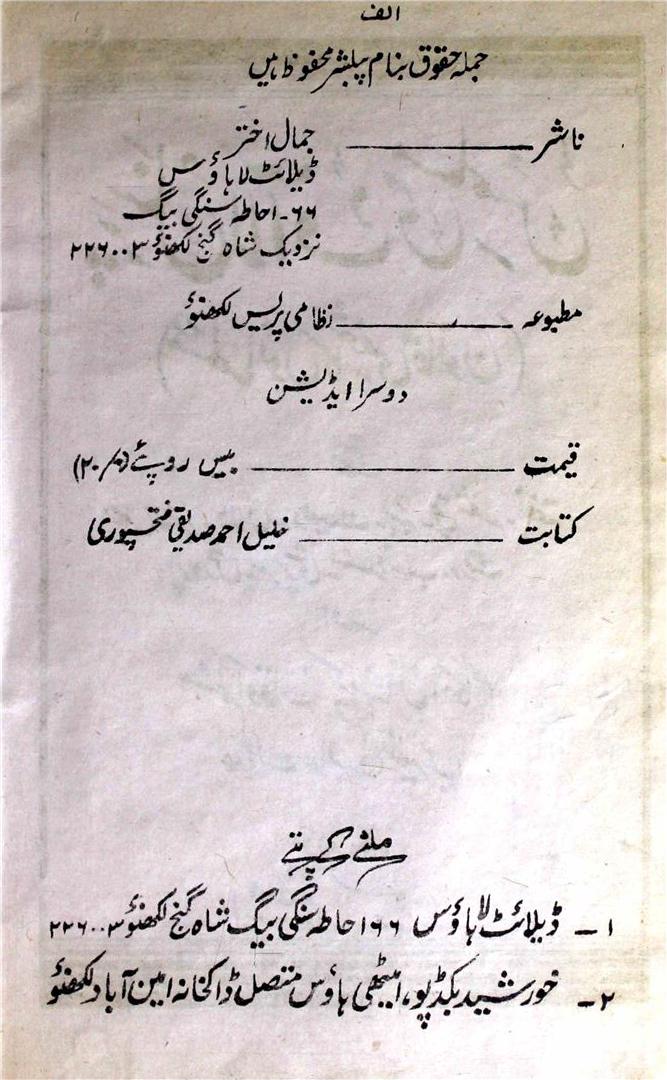 الف
جملہ حقوق بنام پبلشر محفوظ ہیں
ناشر ــــــــــ جمال اختر
ڈیلائٹ لا ہاؤس
۶۶۔احاطہ سنگی بیگ
نزدیک شاہ گنج لکھنؤ ۲۲۶۰۰۳
مطبوعہ ــــــــــ نظامی پریس لکھنؤ
دوسرا ایڈیشن
قیمت ــــــــــ بیس روپئے (۲۰/۰)
کتابت ــــــــــ خلیل احمد صدیقی فتحپوری
ملنے کے پتے
۱ــ ڈیلائٹ لا ہاؤس ۶۶ احاطہ سنگی بیگ شاہ گنج لکھنؤ ۲۲۶۰۰۳
۲ــ خورشید بکڈپو، امیٹھی ہاؤس متصل ڈاکخانہ امین آباد لکھنؤ